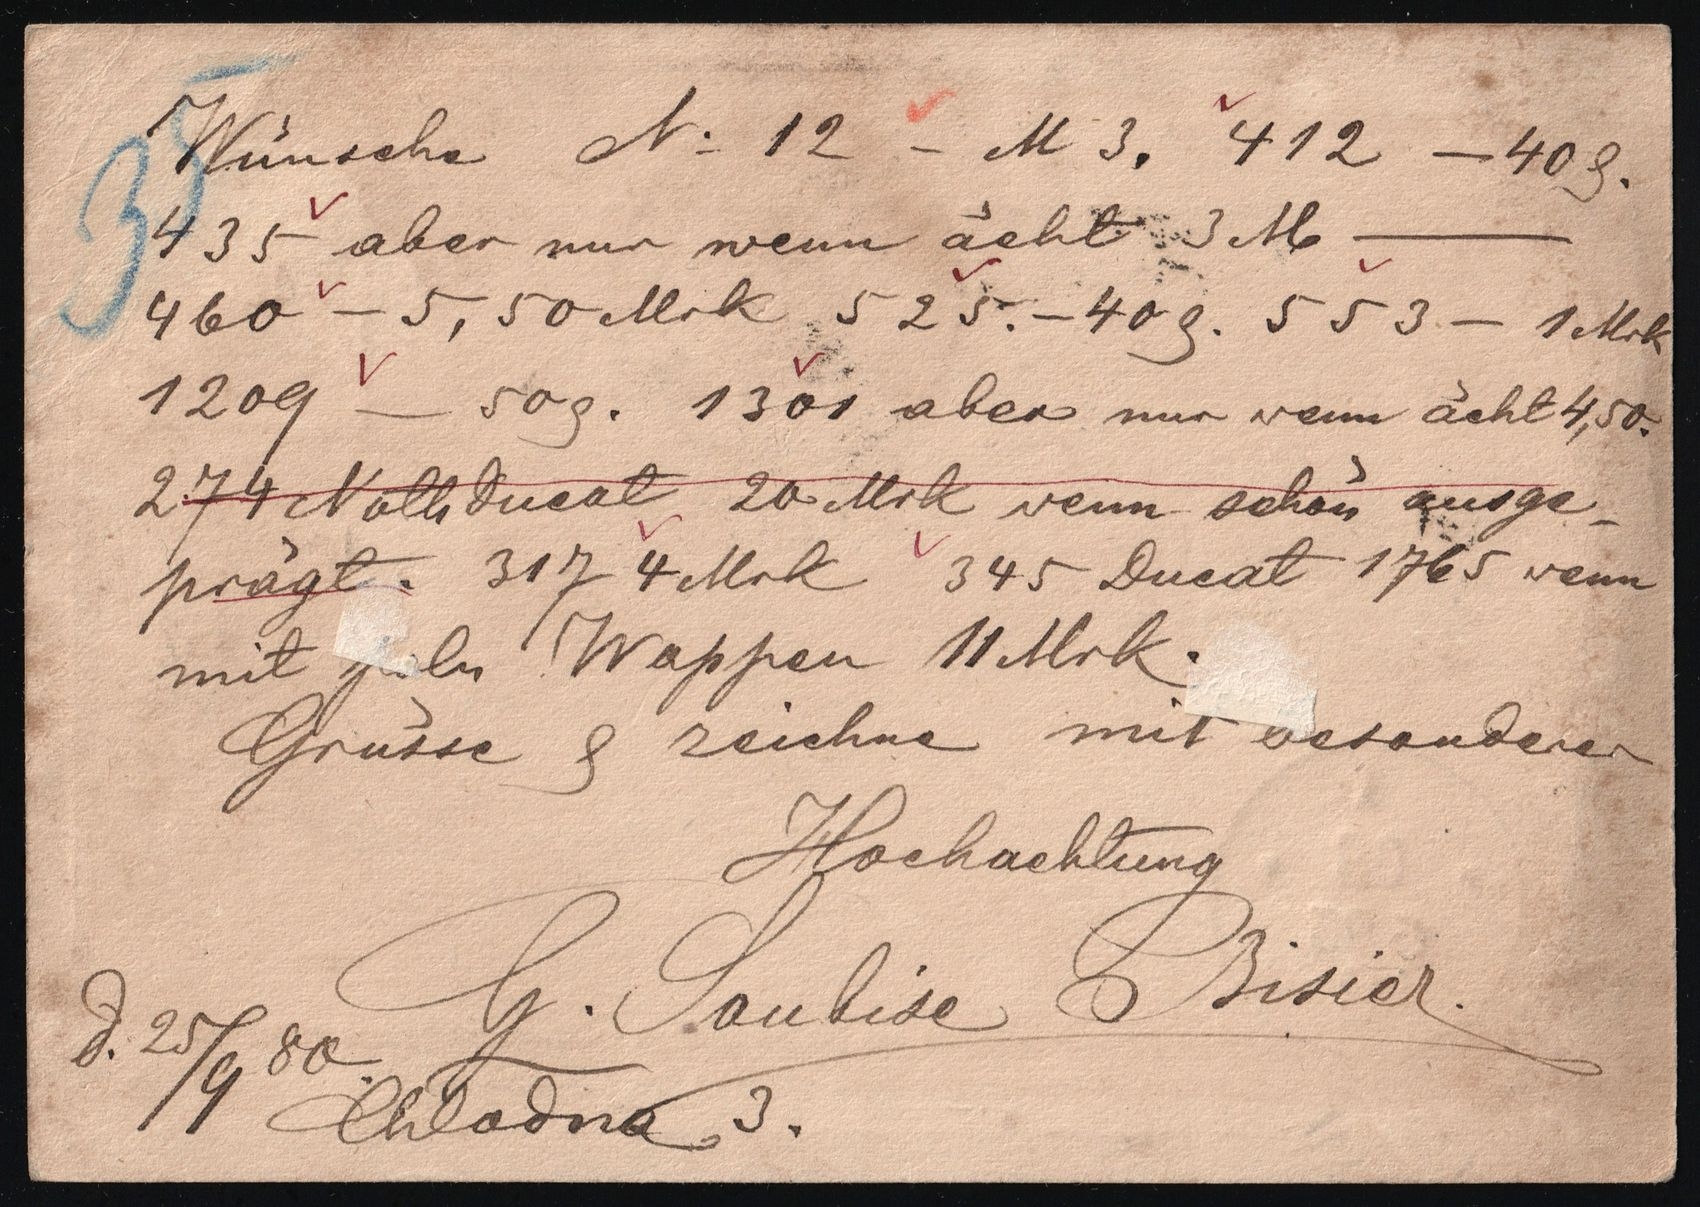 35
Wünsche N: 12 - M 3. 412 — 40 g.
435 aber nur wenn ächt 3 M ———
460 — 5,50 Mrk 525. — 40 g. 553 — 1 Mrk
1209 — 50 g. 1301 aber nur wenn ächt 4,50.
274 Noth Ducat 20 Mrk wenn schön ausge-
prägt. 317 4 Mrk 345 Ducat 1765 wenn
mit poln Wappen 11 Mrk.
Grüsse & zeichne mit besonderer
Hochachtung
G. Soubise Bisier.
d. 25/9 80.
Chlodna 3.